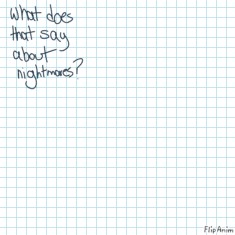 What does
that say
about
nightmares?
FlipAnim